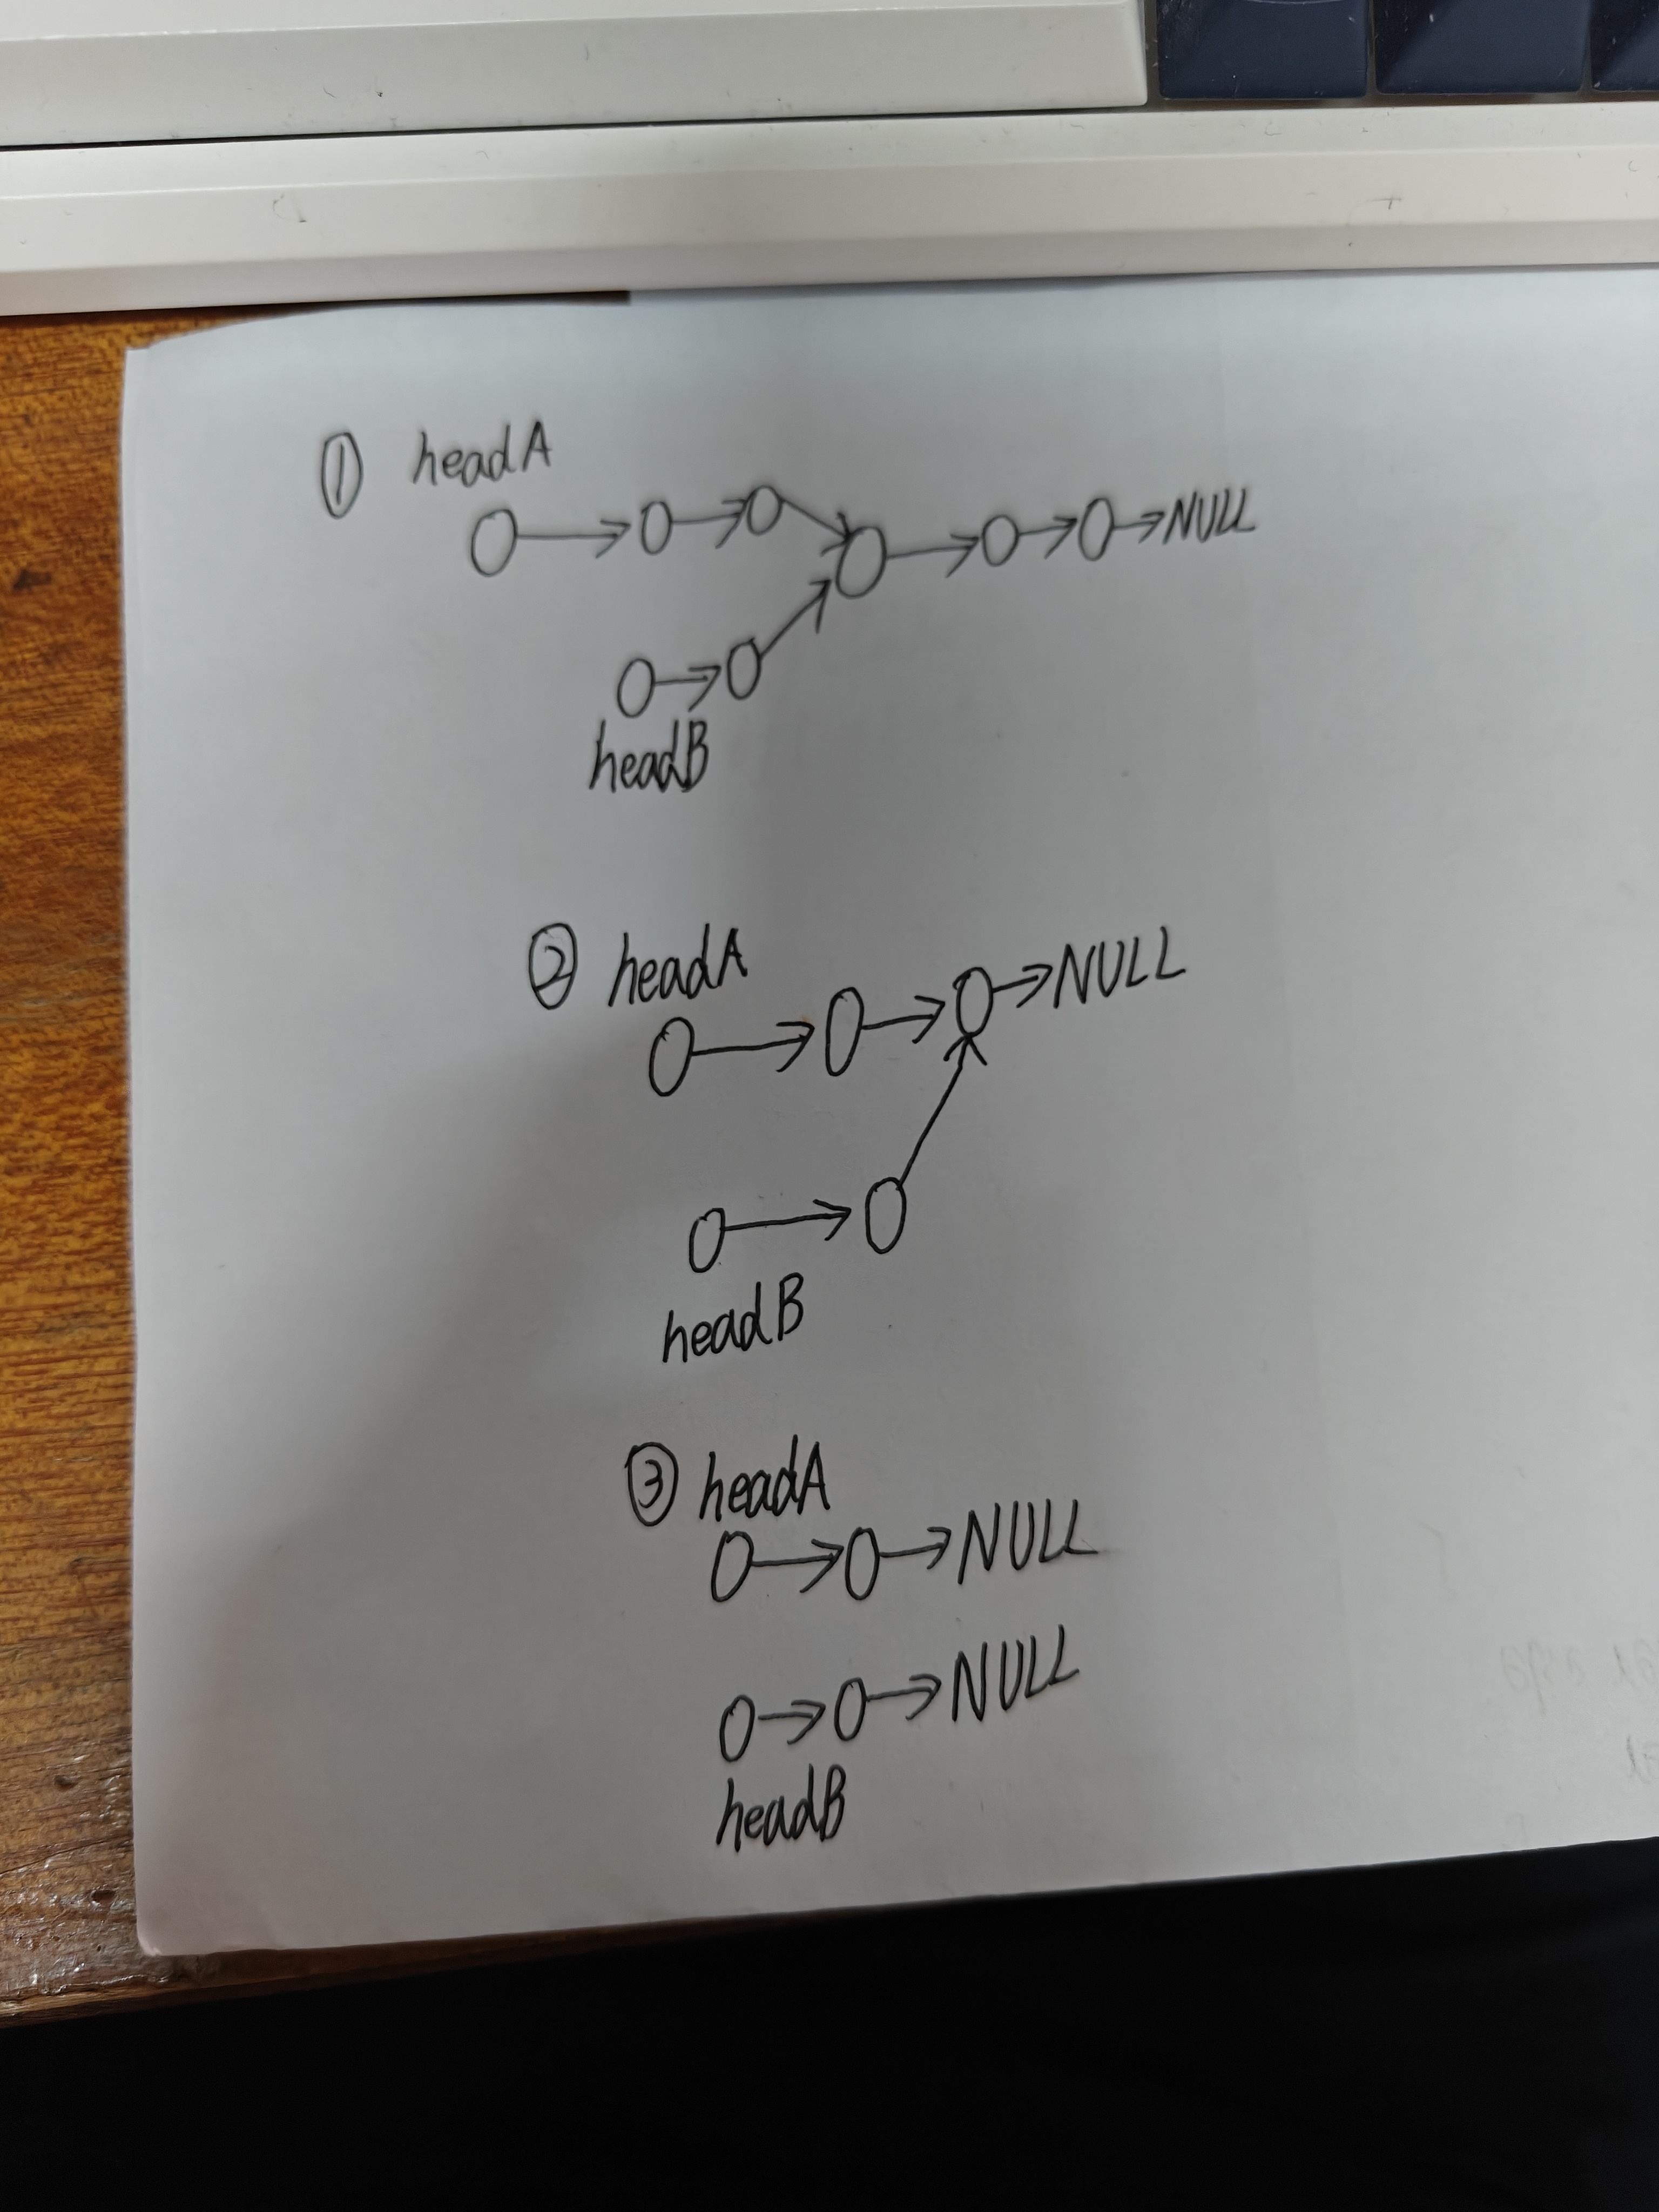 ① headA
NULL
headB
② headA
NULL
headB
③ headA
NULL
NULL
headB